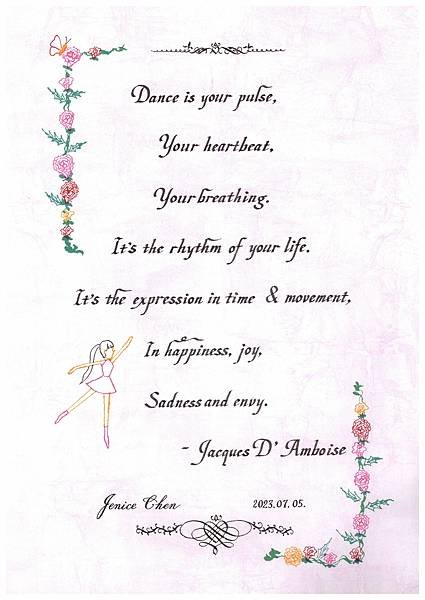 Dance is your pulse,
Your heartbeat,
Your breathing.
It's the rhythm of your life.
It's the expression in time & movement,
In happiness, joy,
Sadness and envy.
- Jacques D' Amboise
Jenice Chen 2023.07.05.